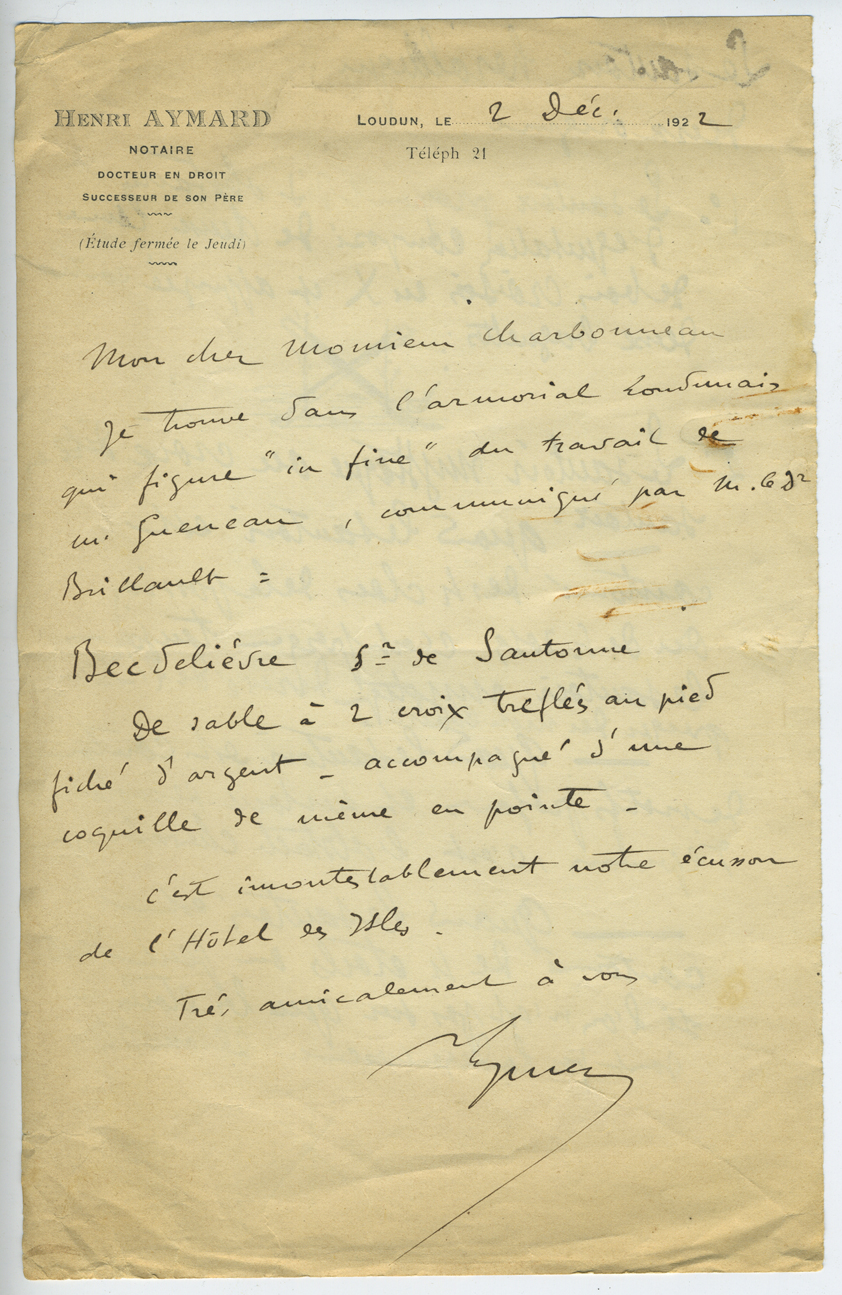 HENRI AYMARD
NOTAIRE
DOCTEUR EN DROIT
SUCCESSEUR DE SON PÈRE
(Étude fermée le Jeudi)
LOUDUN, LE 2 Déc. 1922
Téléph 21
Mon cher Monsieur Charbonneau
Je trouve dans l'armorial Loudunais
qui figure "in fine" du travail de
m. Gueneau, communiqué par m. le Dr
Brillault =
Becdelièvre Sr de Santonne
De sable à 2 croix treflés au pied
fiché d'argent - accompagné d'une
coquille de même en pointe -
c'est incontestablement notre écusson
de l'Hôtel des Isles.
Très amicalement à vous